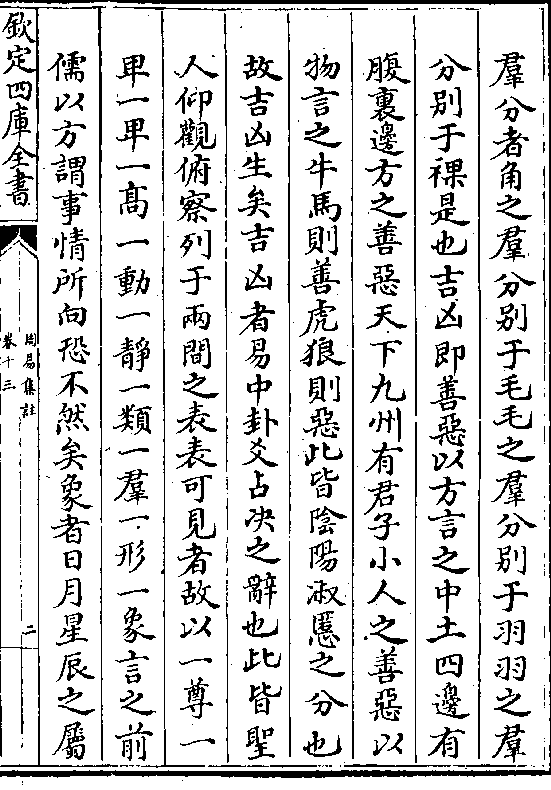 羣分者角之羣分别于毛毛之羣分别于羽羽之羣
分别于祼是也吉凶即善惡以方言之中土四邊有
腹裏邊方之善惡天下九州有君子小人之善惡以
物言之牛馬則善虎狼則惡此皆陰陽淑慝之分也
故吉凶生矣吉凶者易中卦爻占决之辭也此皆聖
人仰觀俯察列于兩間之表表可見者故以一尊一
卑一卑一髙一動一靜一類一羣一形一象言之前
儒以方謂事情所向恐不然矣象者日月星辰之屬
欽定四庫全書
周易集註
卷十三
二